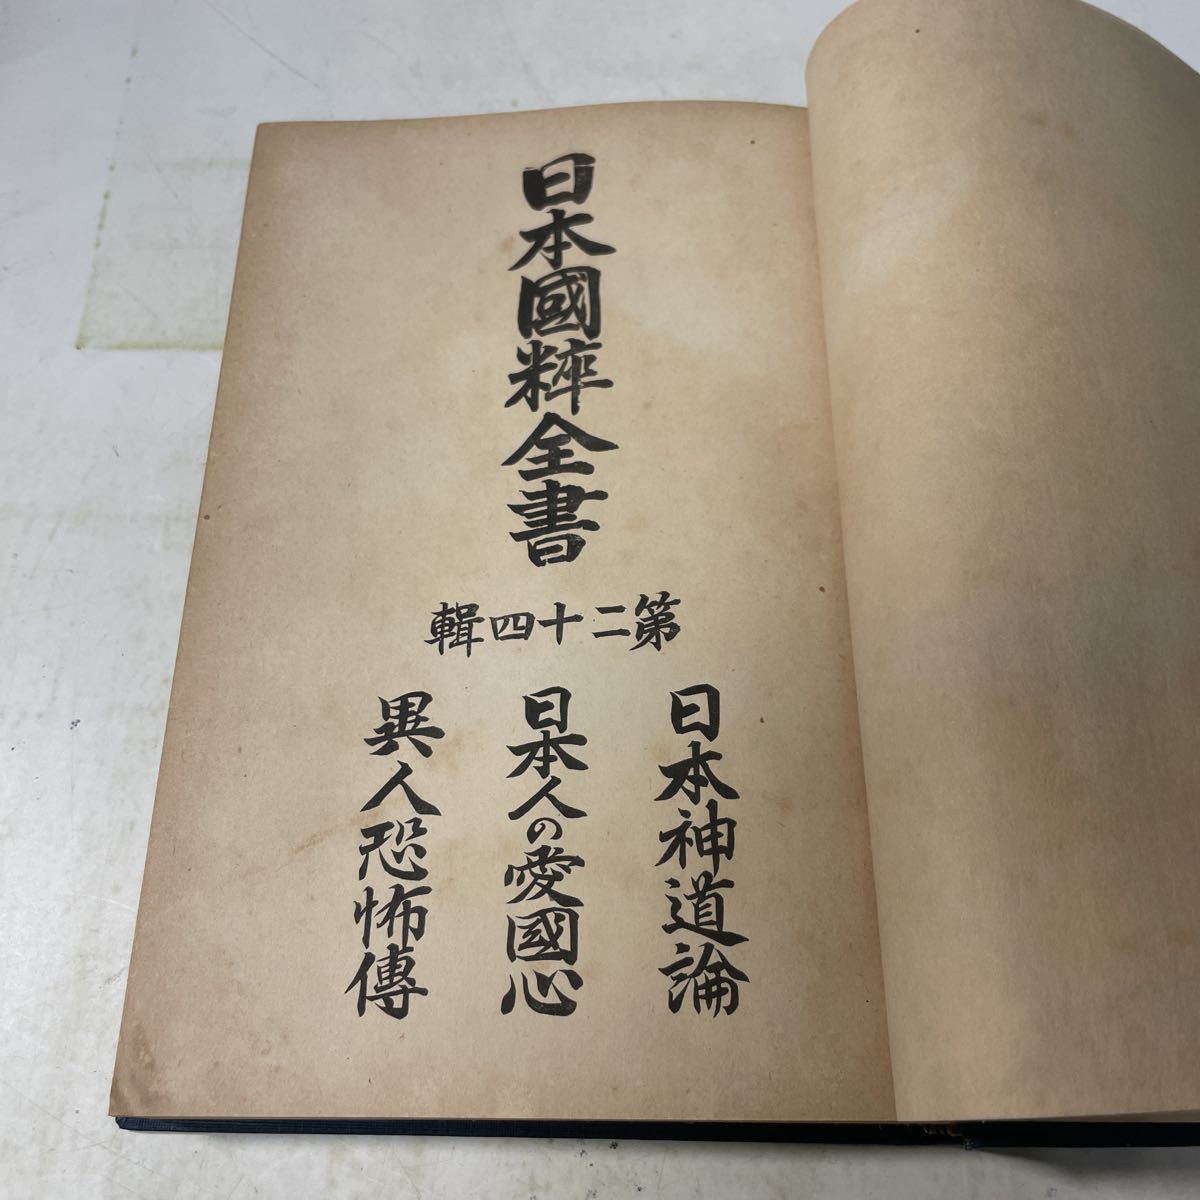 日本國粹全書
第二十四輯
日本神道論
日本人の愛國心
異人恐怖傳